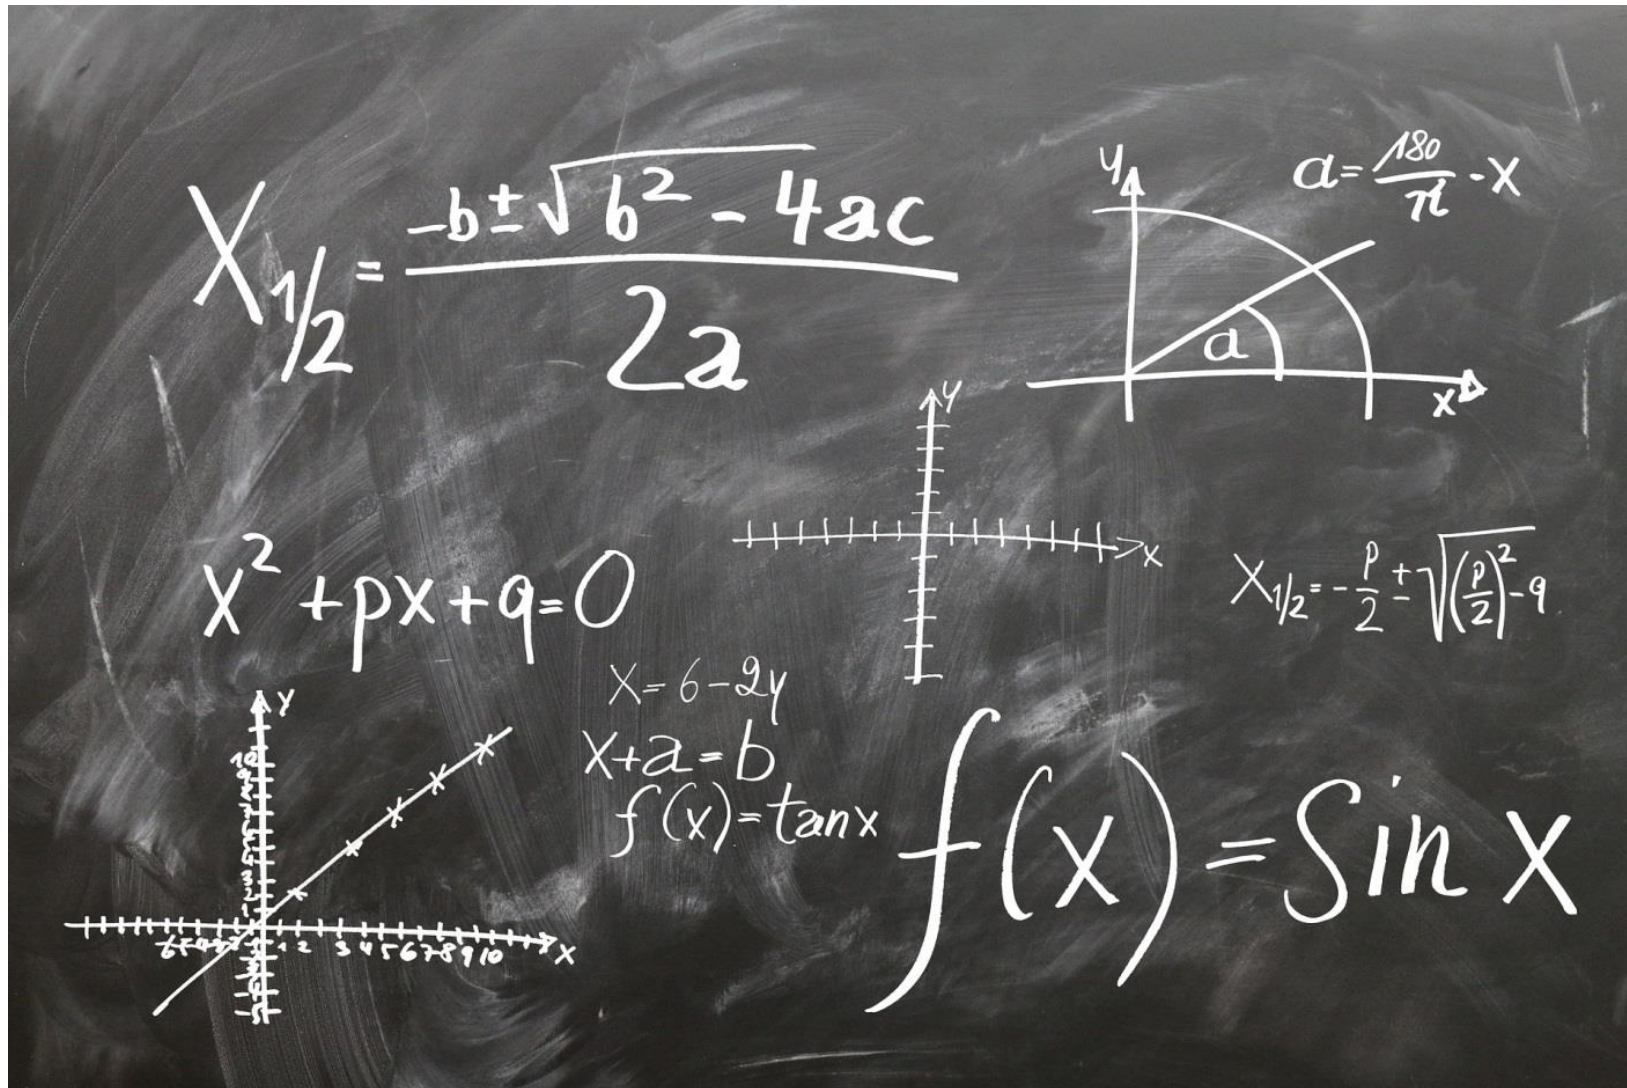 X₁/₂ = (-b ± √(b² - 4ac)) / 2a
y
a = 180/π - X
a
x
y
x
x² + px + q = 0
X₁/₂ = -p/2 ± √((p/2)² - q)
x = 6 - 2y
x + a = b
f(x) = tan x
f(x) = sin x
y
1 2 3 4 5 6 7 8 9 10
x